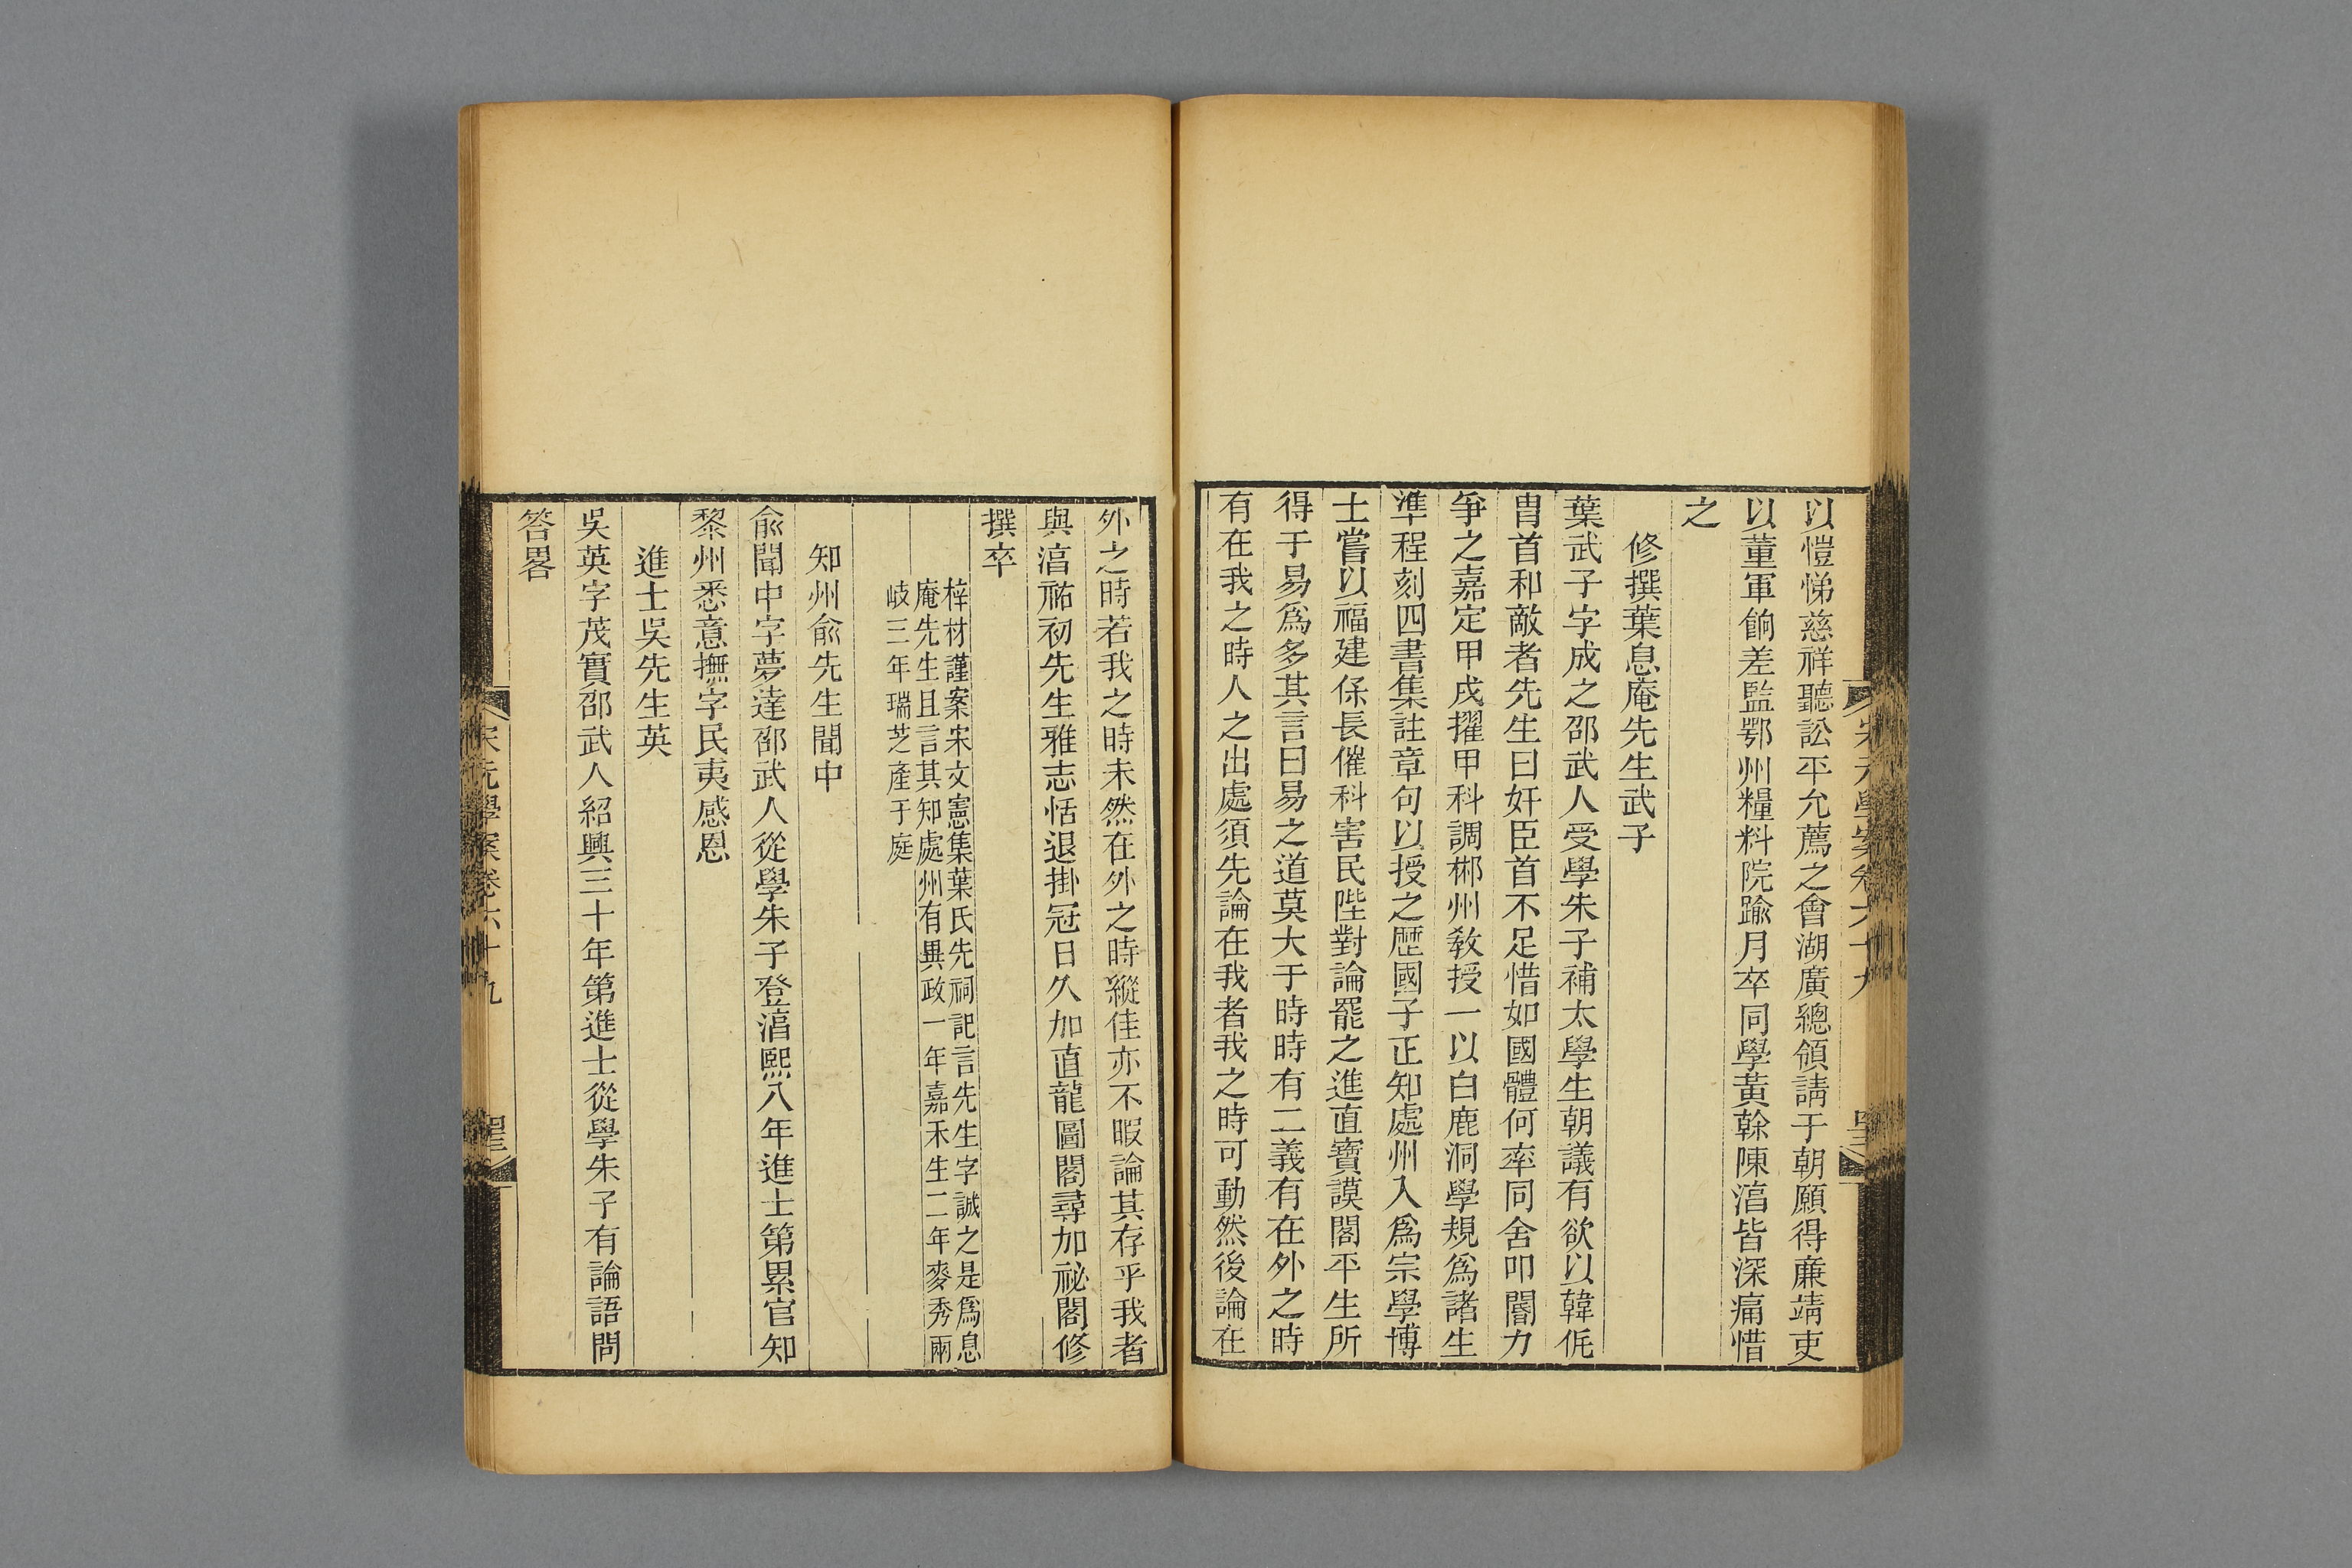 以愷悌慈祥聽訟平允薦之會湖廣總領請于朝願得亷靖吏
以董軍餉差監鄂州糧料院踰月卒同學黃榦陳湻皆深痛惜
之
修撰葉息庵先生武子
葉武子字成之邵武人受學朱子補太學生朝議有欲以韓侂
胄首和敵者先生曰奸臣首不足惜如國體何率同舍叩閽力
爭之嘉定甲戌擢甲科調郴州敎授一以白鹿洞學規爲諸生
準程刻四書集註章句以授之歷國子正知處州入爲宗學博
士嘗以福建保長催科害民陛對論罷之進直寶謨閣平生所
得于易爲多其言曰易之道莫大于時時有二義有在外之時
有在我之時人之出處須先論在我者我之時可動然後論在
外之時若我之時未然在外之時縱佳亦不暇論其存乎我者
與湻祐初先生雅志恬退掛冠日久加直龍圖閣尋加祕閣修
撰卒
梓材謹案宋文憲集葉氏先祠記言先生字誠之是爲息
庵先生且言其知處州有異政一年嘉禾生二年麥秀兩
岐三年瑞芝產于庭
知州俞先生聞中
俞聞中字夢達邵武人從學朱子登湻熙八年進士第累官知
黎州悉意撫字民夷感恩
進士吳先生英
吳英字茂實邵武人紹興三十年第進士從學朱子有論語問
答畧
宋元學案卷六十九